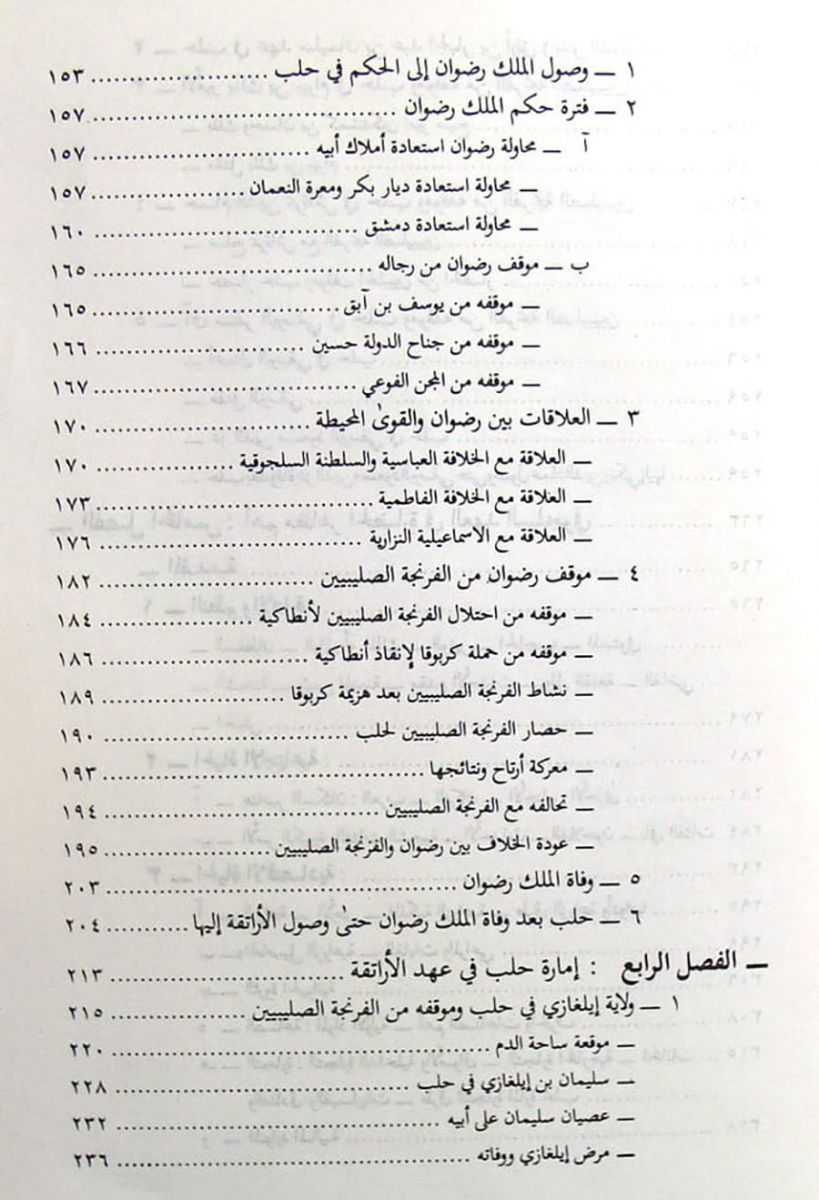 ١ ـ وصول الملك رضوان إلى الحكم في حلب ........................ ١٥٣
٢ ـ فترة حكم الملك رضوان ........................ ١٥٧
آ ـ محاولة رضوان استعادة أملاك أبيه ........................ ١٥٧
ـ محاولة استعادة ديار بكر ومعرة النعمان ........................ ١٥٧
ـ محاولة استعادة دمشق ........................ ١٦٠
ب ـ موقف رضوان من رجاله ........................ ١٦٥
ـ موقفه من يوسف بن آبق ........................ ١٦٥
ـ موقفه من جناح الدولة حسين ........................ ١٦٦
ـ موقفه من المجن الفوعي ........................ ١٦٧
٣ ـ العلاقات بين رضوان والقوىٰ المحيطة ........................ ١٧٠
ـ العلاقة مع الخلافة العباسية والسلطنة السلجوقية ........................ ١٧٠
ـ العلاقة مع الخلافة الفاطمية ........................ ١٧٣
ـ العلاقة مع الاسماعيلية النزارية ........................ ١٧٦
٤ ـ موقف رضوان من الفرنجة الصليبيين ........................ ١٨٢
ـ موقفه من احتلال الفرنجة الصليبيين لأنطاكية ........................ ١٨٤
ـ موقفه من حملة كربوقا لإنقاذ أنطاكية ........................ ١٨٦
ـ نشاط الفرنجة الصليبيين بعد هزيمة كربوقا ........................ ١٨٩
ـ حصار الفرنجة الصليبيين لحلب ........................ ١٩٠
ـ معركة أرتاح ونتائجها ........................ ١٩٣
ـ تحالفه مع الفرنجة الصليبيين ........................ ١٩٤
ـ عودة الخلاف بين رضوان والفرنجة الصليبيين ........................ ١٩٥
٥ ـ وفاة الملك رضوان ........................ ٢٠٣
٦ ـ حلب بعد وفاة الملك رضوان حتىٰ وصول الأراتقة إليها ........................ ٢٠٤
ـ الفصل الرابع : إمارة حلب في عهد الأراتقة ........................ ٢١٣
١ ـ ولاية إيلغازي في حلب وموقفه من الفرنجة الصليبيين ........................ ٢١٥
ـ موقعة ساحة الدم ........................ ٢٢٠
ـ سليمان بن إيلغازي في حلب ........................ ٢٢٨
ـ عصيان سليمان على أبيه ........................ ٢٣٢
ـ مرض إيلغازي ووفاته ........................ ٢٣٦